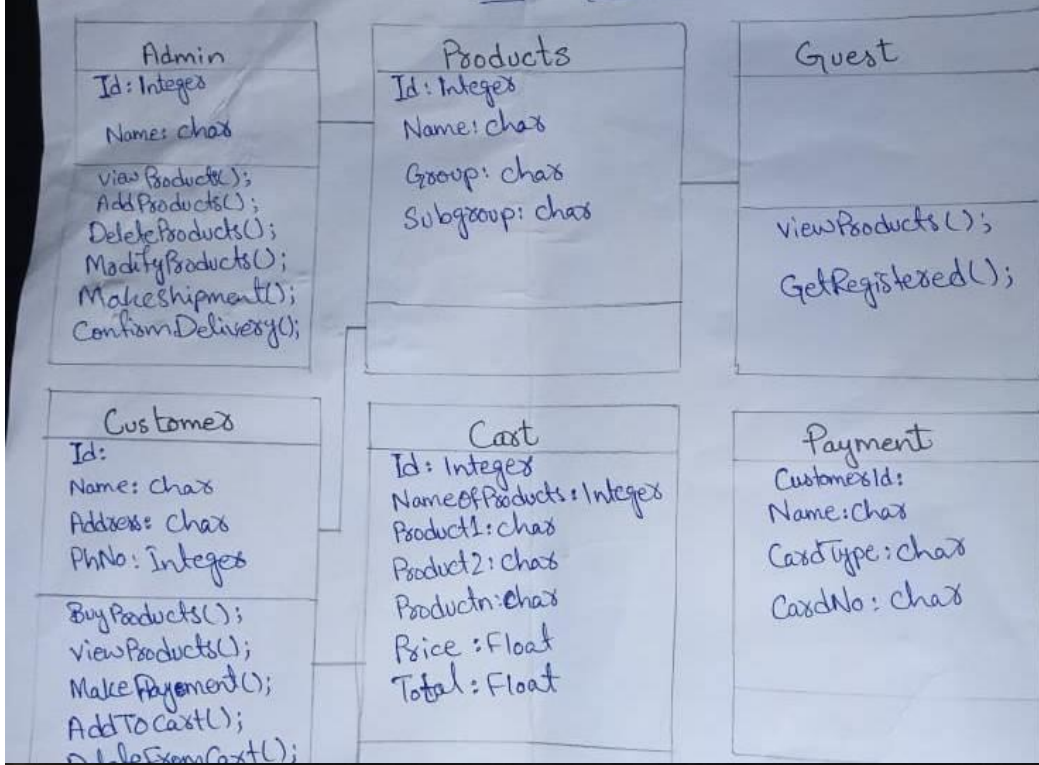 Admin
Id: Integer
Name: char
viewProducts();
AddProducts();
DeleteProducts();
ModifyProducts();
Makeshipment();
ConfirmDelivery();
Products
Id: Integer
Name: char
Group: char
Subgroup: char
Guest
viewProducts();
GetRegistered();
Customer
Id:
Name: char
Address: char
PhNo: Integer
BuyProducts();
viewProducts();
MakePayment();
AddToCart();
DeleteFromCart();
Cart
Id: Integer
NameOfProducts: Integer
Product1: char
Product2: char
Productn: char
Price: Float
Total: Float
Payment
CustomerId:
Name: char
CardType: char
CardNo: char